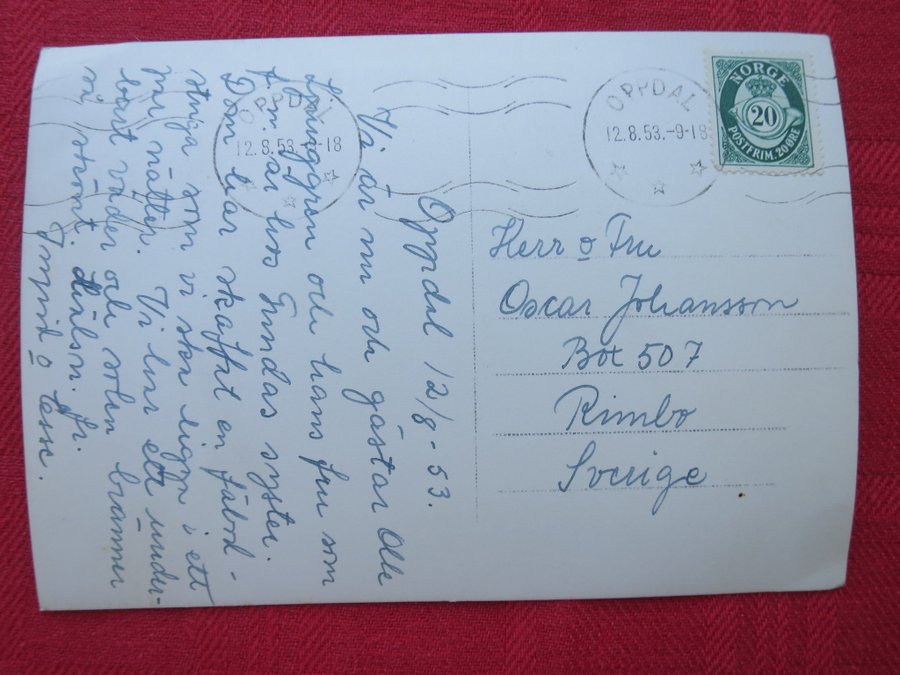 Oppdal 12/8-53.
Vi är nu och gästar Olle
Ljunggren och hans fru som
f.n. är hos Gundas syster.
Dom har skaffat en fäbod-
stuga som vi ska ligga i ett
par nätter. Vi har ett under-
bart väder och solen bränner
så skönt. Hälsn. fr.
Ingrid o Lasse.
OPPDAL
12.8.53.-9-18
OPPDAL
12.8.53.-9-18
NORGE
20
POSTFRIM. 20 ØRE
Herr o Fru
Oscar Johansson
Box 507
Rimbo
Sverige